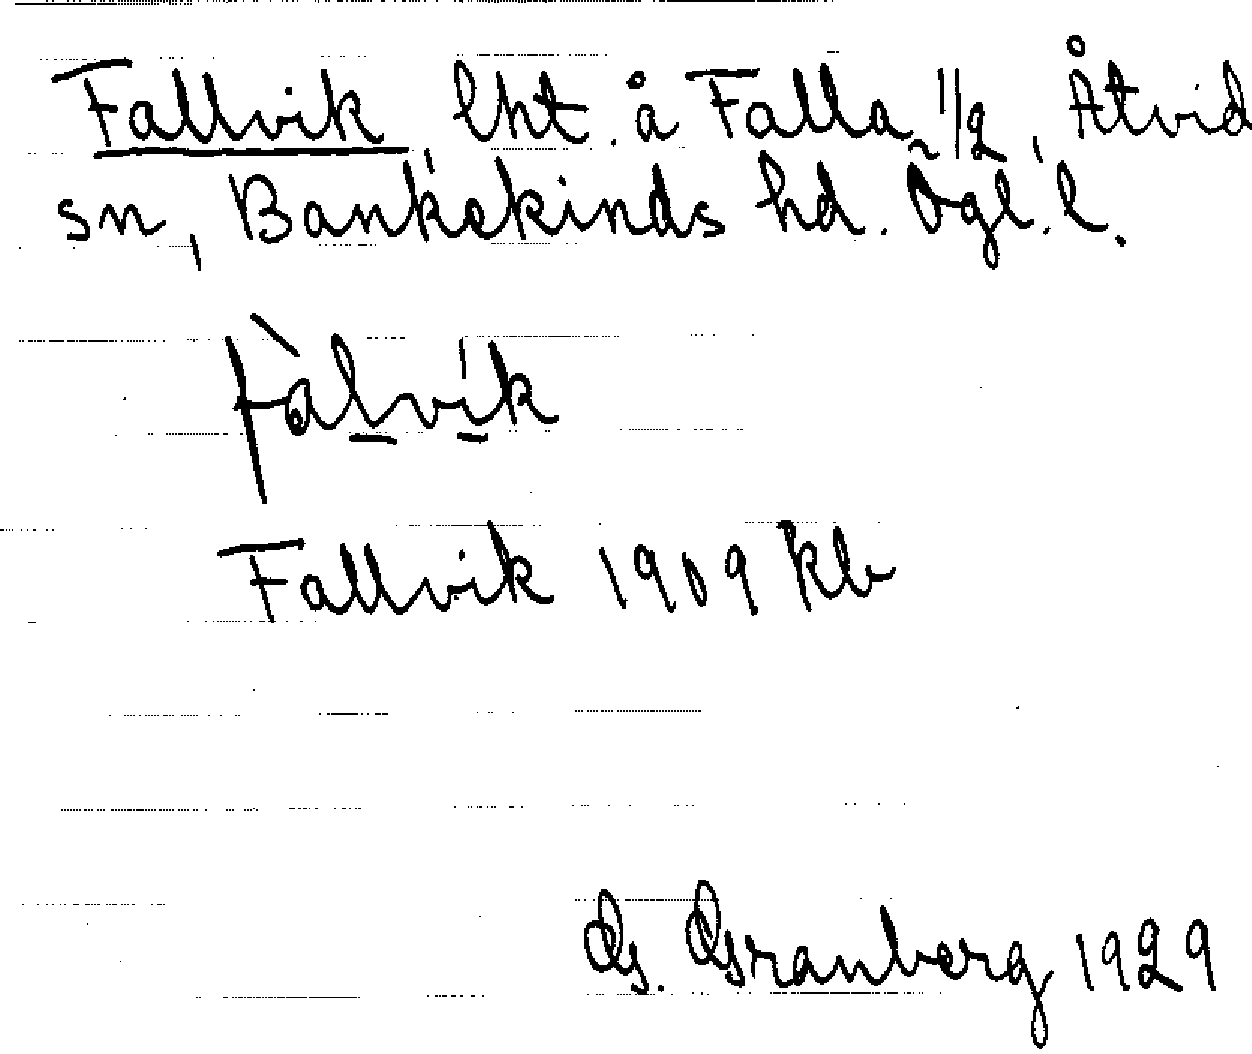 Fallvik, lht. å Falla 1/2, Åtvid
sn, Bankekinds hd. Ögl. l.
fàlvik
Fallvik 1909 kb
G. Granberg 1929